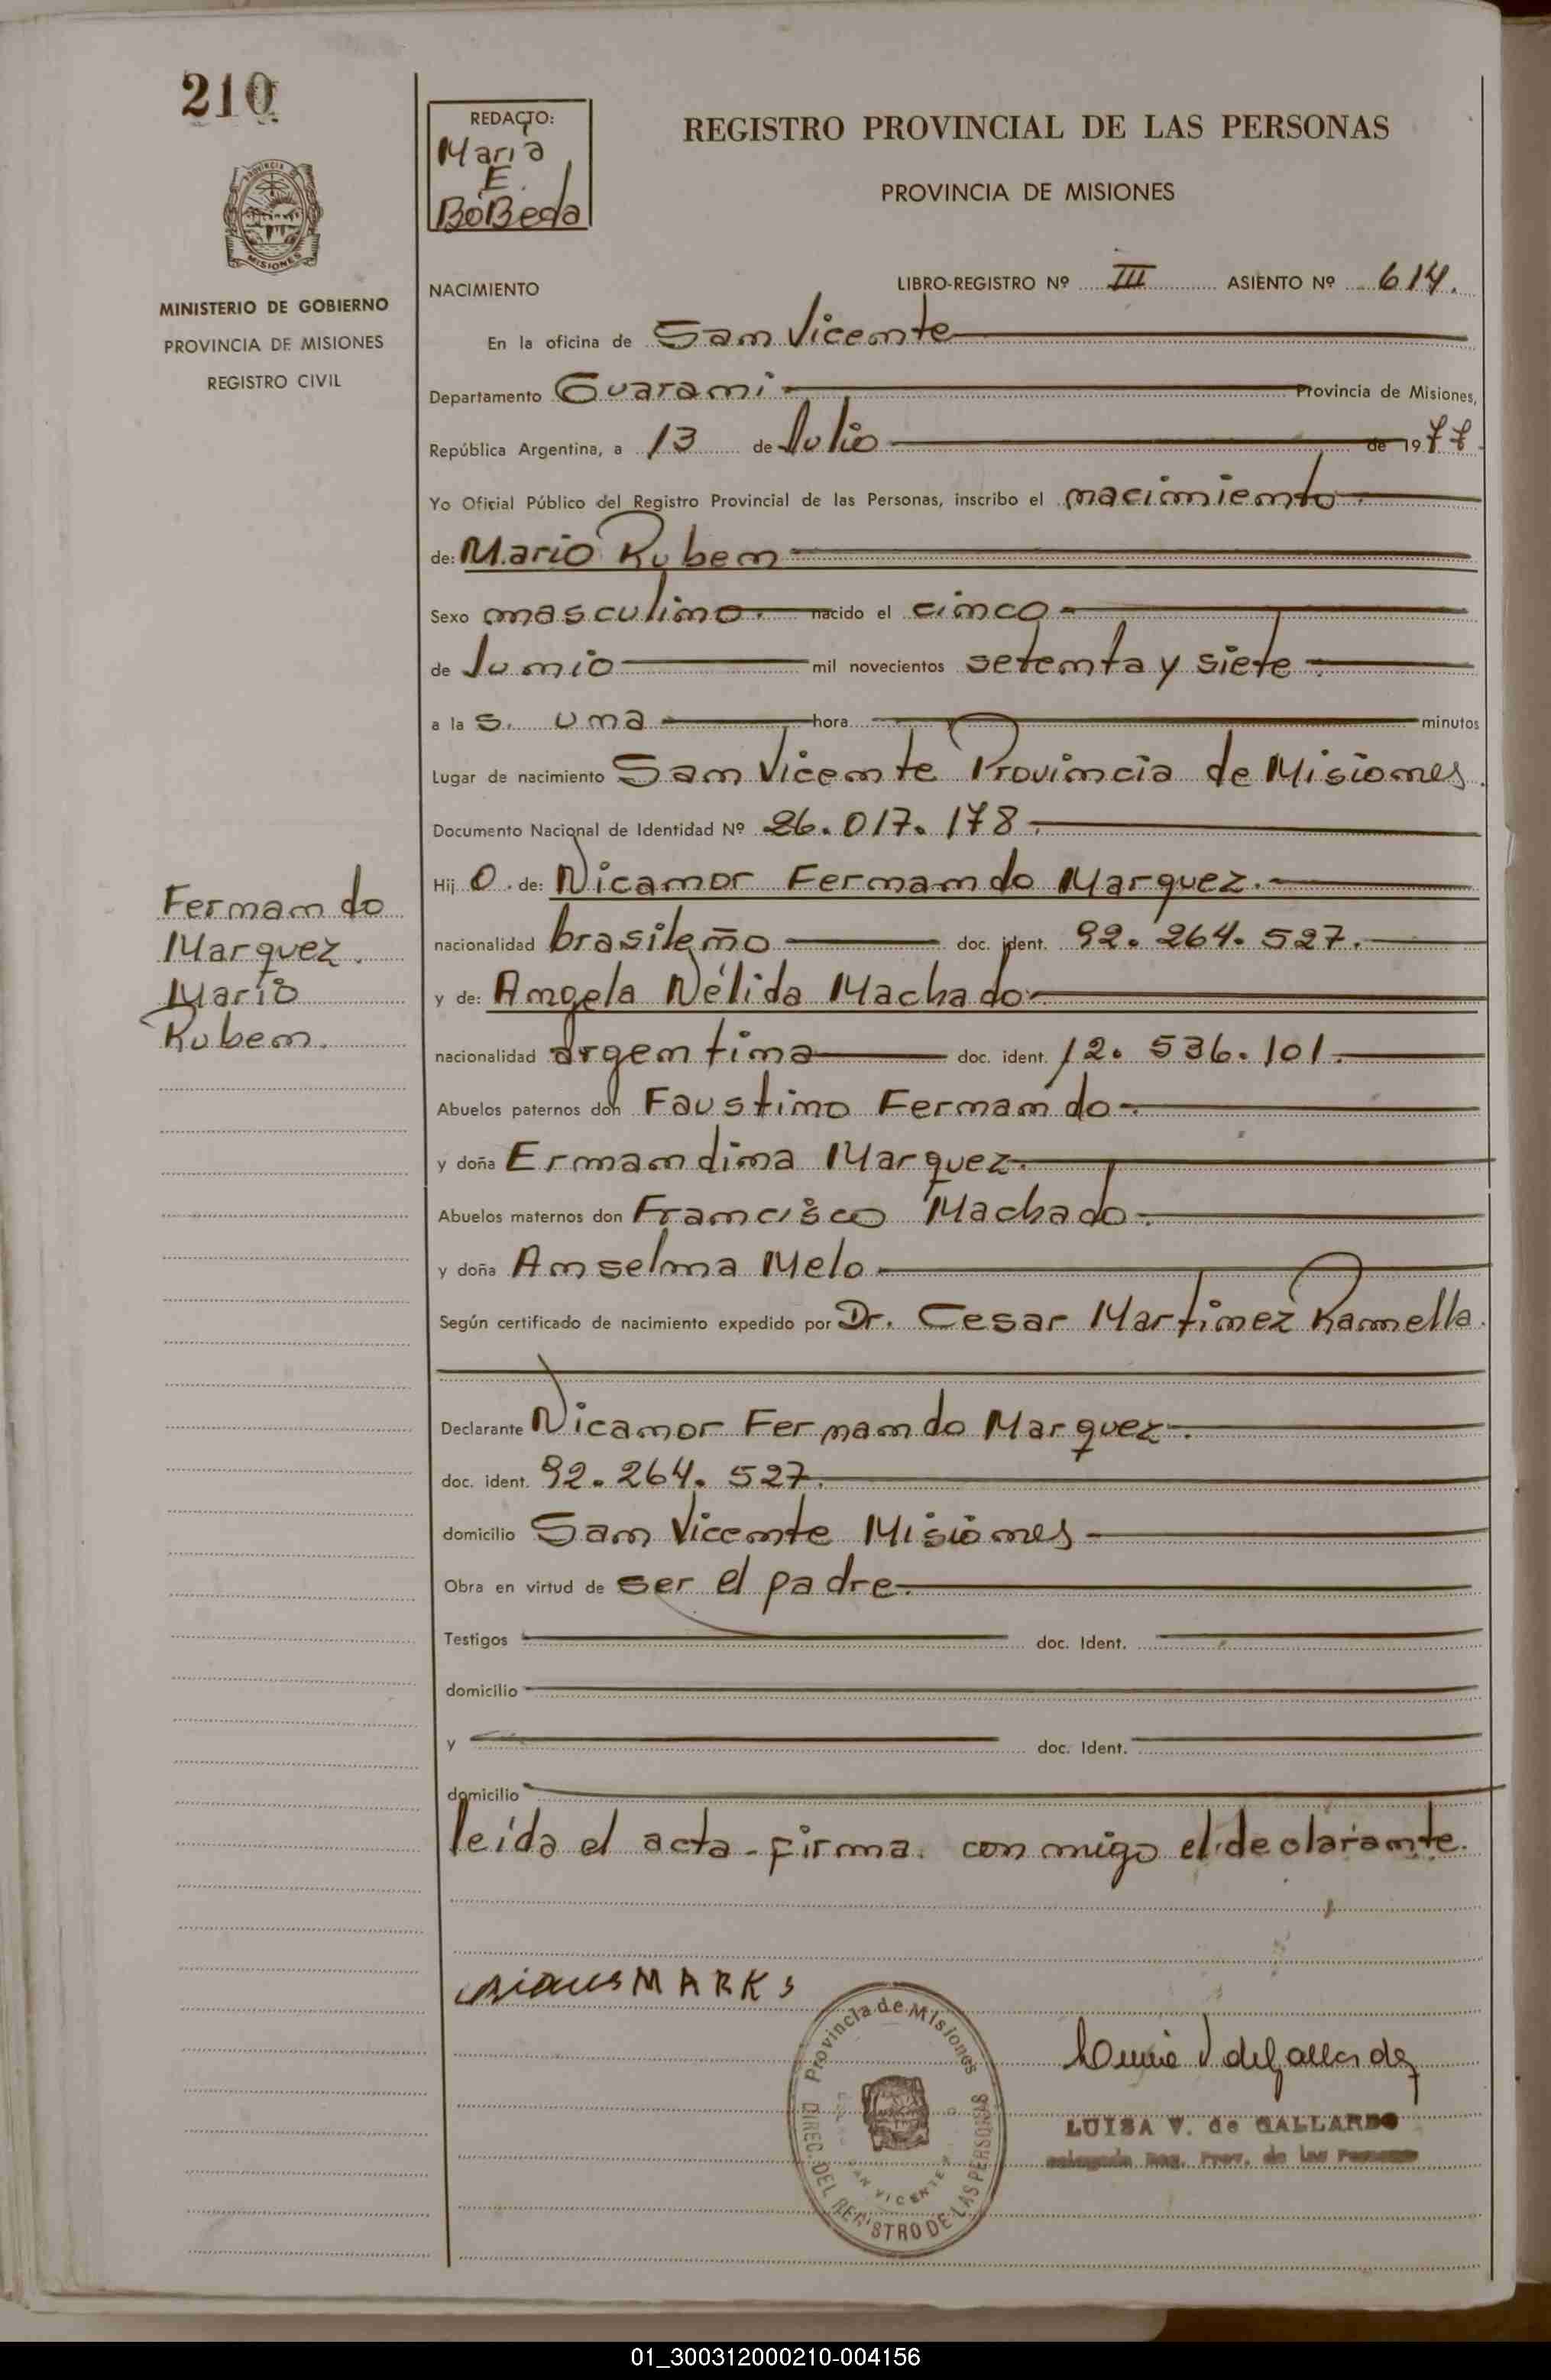 210
REDACTO:
Maria
E.
BoBeda
REGISTRO PROVINCIAL DE LAS PERSONAS
PROVINCIA DE MISIONES
MISIONES
MINISTERIO DE GOBIERNO
PROVINCIA DE MISIONES
REGISTRO CIVIL
NACIMIENTO LIBRO-REGISTRO Nº III ASIENTO Nº 614.
En la oficina de San Vicente
Departamento Guarani Provincia de Misiones,
República Argentina, a 13 de Julio de 1977
Yo Oficial Público del Registro Provincial de las Personas, inscribo el nacimiento
de: Mario Ruben
Sexo masculino. nacido el cinco
de Junio mil novecientos setenta y siete
a la s. una hora minutos
Lugar de nacimiento San Vicente Provincia de Misiones.
Documento Nacional de Identidad Nº 26.017.178
Hij o. de: Nicanor Fernando Marquez.
nacionalidad brasileño doc. ident. 92.264.527.
y de: Angela Nélida Machado
nacionalidad argentina doc. ident. 12.536.101.
Abuelos paternos don Faustino Fernando
y doña Ernandina Marquez.
Abuelos maternos don Francisco Machado.
y doña Anselma Melo
Según certificado de nacimiento expedido por Dr. Cesar Martinez Ramella.
Declarante Nicanor Fernando Marquez.
doc. ident. 92.264.527.
domicilio San Vicente Misiones
Obra en virtud de ser el padre.
Testigos doc. Ident.
domicilio
y doc. Ident.
domicilio
leida el acta-firma. conmigo el declarante.
Fernando
Marquez.
Mario
Ruben.
MARKS
Provincia de Misiones
DIREC. DEL REGISTRO DE LAS PERSONAS
SAN VICENTE
LUISA V. de GALLARDO
Delegada Reg. Prov. de las Personas
01_300312000210-004156